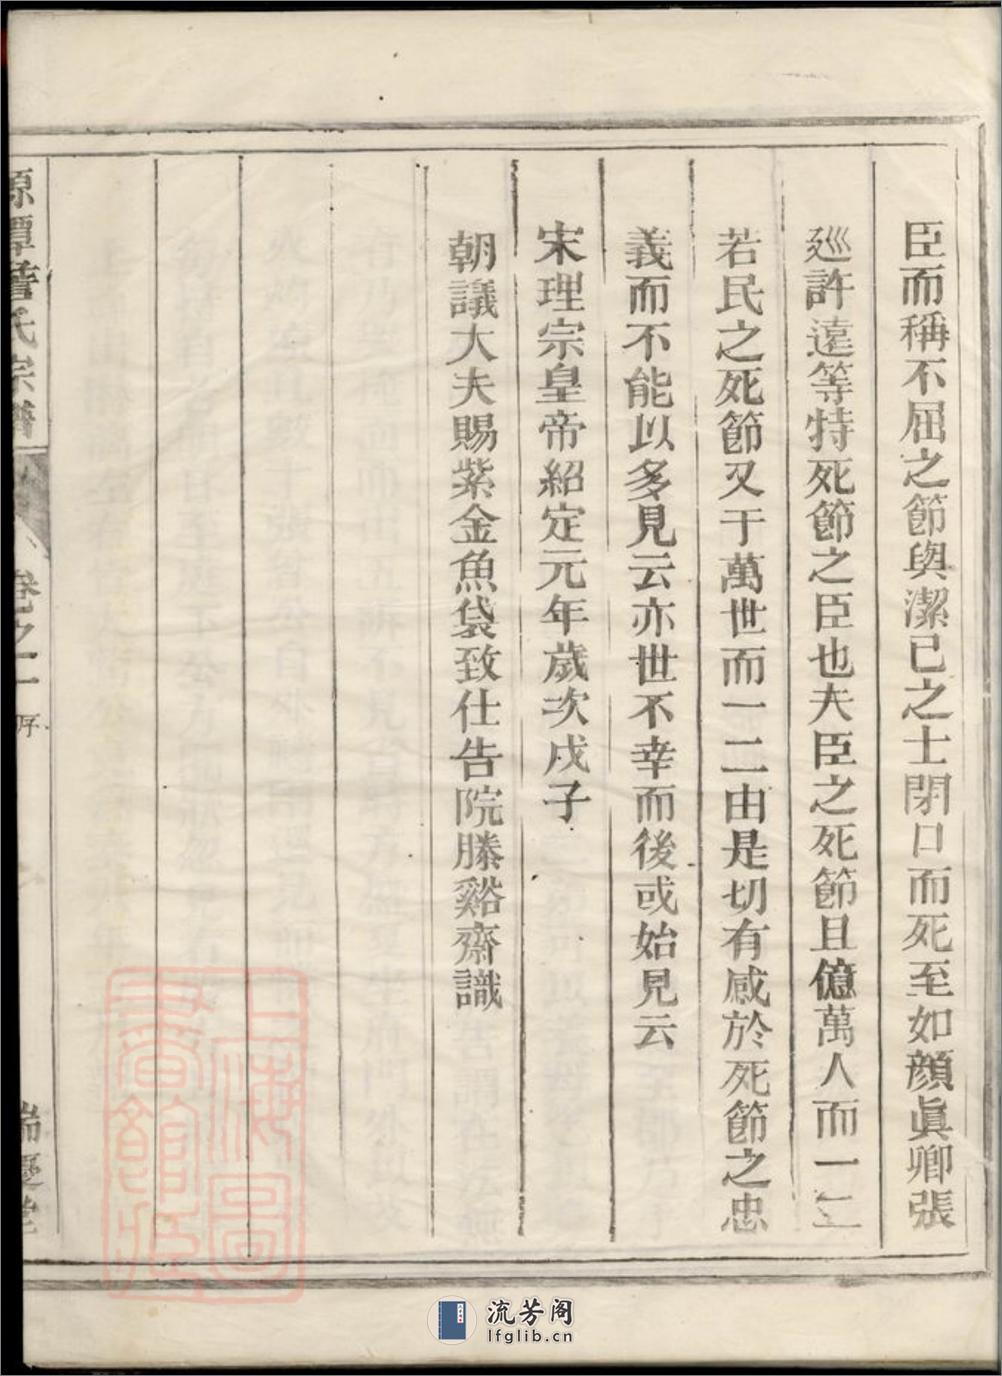 臣而稱不屈之節與潔已之士閉口而死至如顔眞卿張
廵許遠等特死節之臣也夫臣之死節且億萬人而一二
若民之死節又于萬世而一二由是切有感於死節之忠
義而不能以多見云亦世不幸而後或始見云
宋理宗皇帝紹定元年歲次戊子
朝議大夫賜紫金魚袋致仕告院滕谿齋識
源潭詹氏宗譜
卷之一
序
上海圖書館藏
流芳阁
lfglib.cn